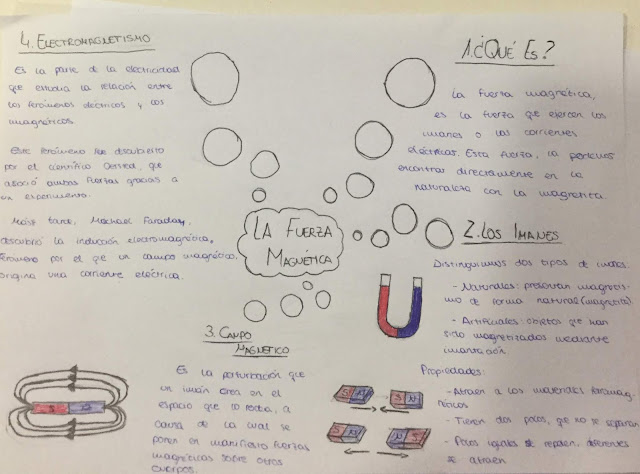 LA FUERZA
MAGNÉTICA
1.¿QUÉ ES?
La fuerza magnética,
es la fuerza que ejercen los
imanes o las corrientes
eléctricas. Esta fuerza, la podemos
encontrar directamente en la
naturaleza con la magnetita.
2. LOS IMANES
Distinguimos dos tipos de imanes:
- Naturales: presentan magnetis-
mo de forma natural (magnetita).
- Artificiales: objetos que han
sido magnetizados mediante
imantación
Propiedades:
- Atraen a los materiales ferromag-
néticos
- Tienen dos polos, que no se separan
- Polos iguales se repelen, diferentes
se atraen
S N N S
S N N S
3. CAMPO
MAGNÉTICO
Es la perturbación que
un imán crea en el
espacio que lo rodea, a
causa de la cual se
ponen en manifiesto fuerzas
magnéticas sobre otros
cuerpos.
S N
4. ELECTROMAGNETISMO
Es la parte de la electricidad
que estudia la relación entre
los fenómenos eléctricos y los
magnéticos
Este fenómeno fue descubierto
por el científico Oersed, que
asoció ambas fuerzas gracias a
un experimento.
Más tarde, Michael Faraday,
descubrió la inducción electromagnética,
fenómeno por el que un campo magnético,
origina una corriente eléctrica.